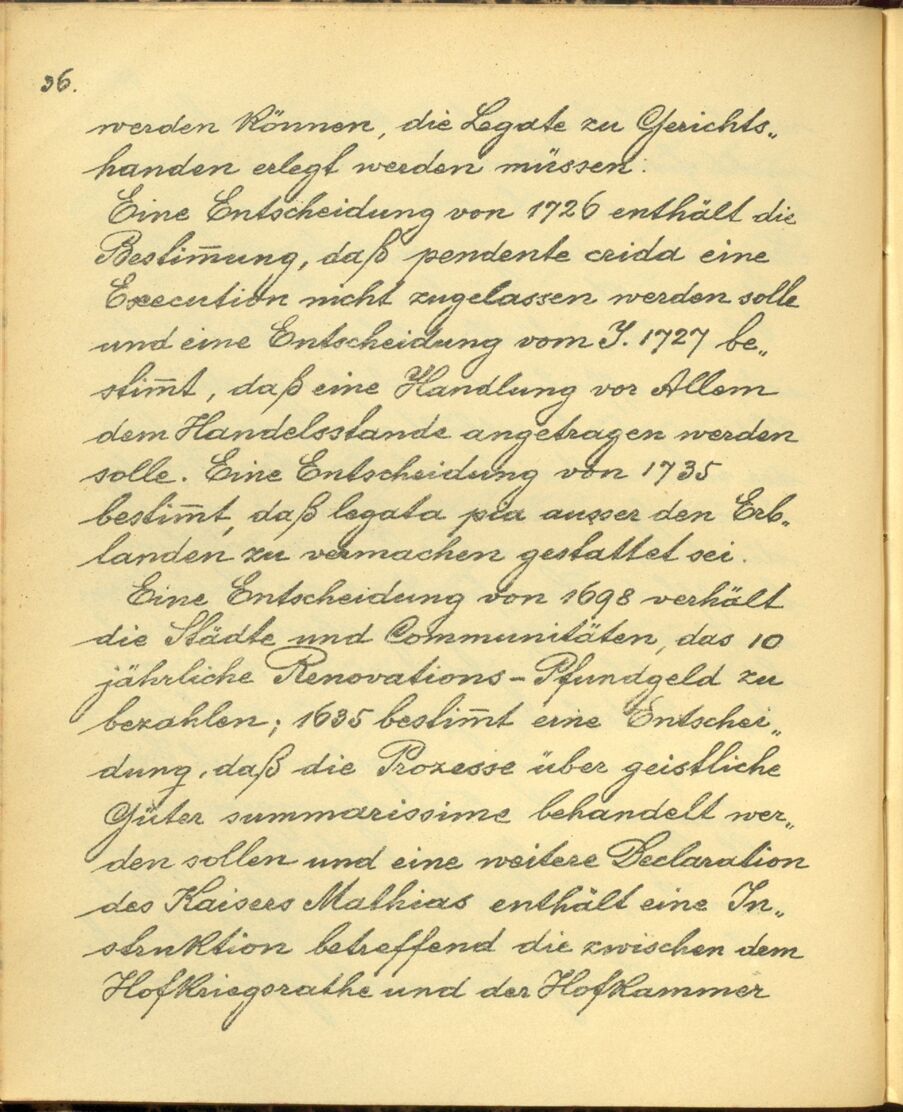 36.
werden können, die Legate zu Gerichts„
handen erlegt werden müssen.
Eine Entscheidung von 1726 enthält die
Bestim̄ung, daß pendente crida eine
Execution nicht zugelassen werden solle
und eine Entscheidung vom J. 1727 be„
stim̄t, daß eine Handlung vor Allem
dem Handelsstande angetragen werden
solle. Eine Entscheidung von 1735
bestim̄t, daß legata pia ausser den Erb„
landen zu vermachen gestattet sei.
Eine Entscheidung von 1698 verhält
die Städte und Communitäten, das 10
jährliche Renovations-Pfundgeld zu
bezahlen; 1635 bestim̄t eine Entschei„
dung, daß die Prozesse über geistliche
Güter summarissime behandelt wer„
den sollen und eine weitere Declaration
des Kaisers Mathias enthält eine In„
struktion betreffend die zwischen dem
Hofkriegsrathe und der Hofkammer